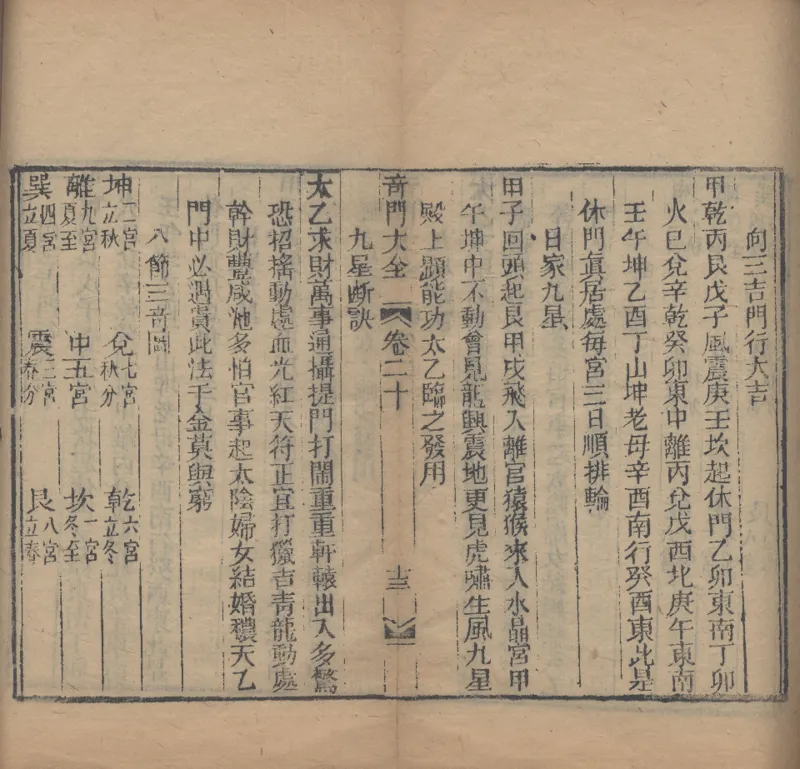 向三吉門行大吉
甲乾丙艮戊子風震庚壬坎起休門乙卯東南丁卯
火巳兌辛乾癸卯東中離丙兌戊西北庚午東南
壬午坤乙酉丁山坤老母辛酉南行癸酉東此是
休門真居處每宮三日順排輪
日家九星
甲子回頭起艮甲戌飛入離宮猿猴來入水晶宮甲
午坤中不動會見龍興震地更見虎嘯生風九星
殿上顯能功太乙臨之發用
奇門大全 卷二十 十三
九星断訣
太乙求財萬事通攝提門打鬧重重軒轅出入多驚
恐招搖動處血光紅天符正宜打獵吉青龍動處
幹財豐咸池多怕官事起太陰婦女結婚穠天乙
門中必遇貴此法千金莫與窮
八節三奇圖
坤二宮立秋 兌七宮秋分 乾六宮立冬
離九宮夏至 中五宮 坎一宮冬至
巽四宮立夏 震三宮春分 艮八宮立春